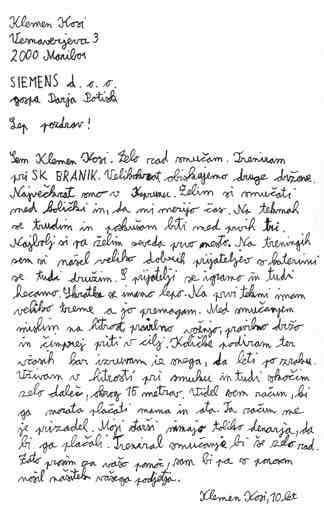 Klemen Kosi
Vesnaverjeva 3
2000 Maribor
SIEMENS d. o. o.
gospa Darja Potisk
Lep pozdrav!
Sem Klemen Kosi. Zelo rad smučam. Treniram
pri SK BRANIK. Velikokrat obiskujemo druge države.
Največkrat smo v Kaprunu. Želim si smučati
med količki in, da mi merijo čas. Na tekmah
se trudim in poskusam biti med prvih tri.
Najbolj si pa želim seveda prvo mesto. Na treningih
sem si našel veliko dobrih prijateljev s katerimi
se tudi družim. S prijatelji se igramo in tudi
hecamo. Skratka se imamo lepo. Na prvi tekmi imam
veliko treme a jo premagam. Med smučanjem
mislim na hitrost pravilno vožnjo, pravilno držo
in čimprej priti v cilj. Količke podiram ter
včasih kar izruvam iz snega, da leti po zraku.
Uživam v hitrosti pri smuku in tudi skočim
zelo daleč, skrog 15 metrov. Videl sem račun, ki
ga morata plačati mama in ata. Ta račun me
je prizadel. Moji starši nimajo toliko denarja, da
bi ga plačali. Treniral smučanje bi še zelo rad.
Zato prosim za vašo pomoč, sam bi pa s ponosom
nosil našitek vašega podjetja.
Klemen Kosi, 10 let